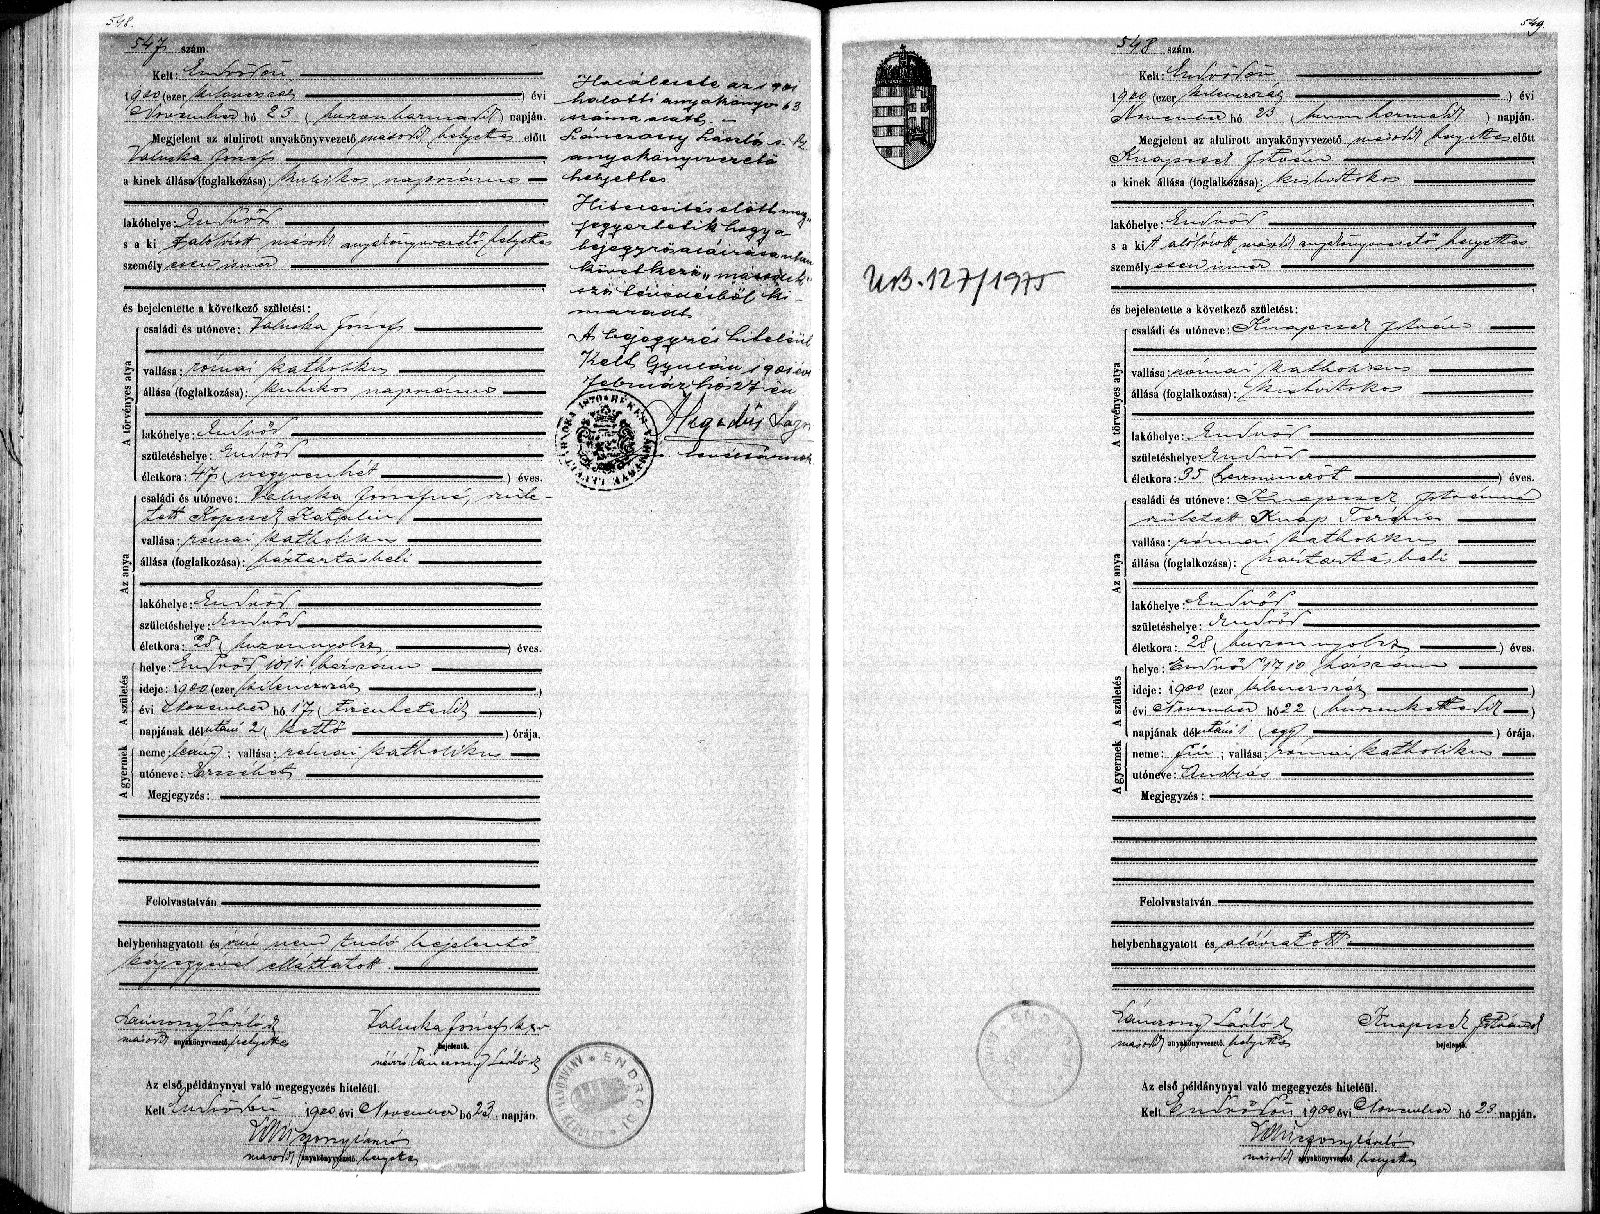 548.
547 szám.
Kelt: Endrődön
1900 (ezer kilenczszáz ) évi
November hó 23 ( huszonharmadik ) napján.
Megjelent az alulirott anyakönyvvezető másodh helyettes előtt
Valuska József
a kinek állása (foglalkozása): kubikos napszámos
lakóhelye: Endrőd
s a ki alólirott másodh anyakönyvvezető helyettes
személyesen ismer
és bejelentette a következő születést:
A törvényes atya
családi és utóneve: Valuska József
vallása: római katholikus
állása (foglalkozása): kubikos napszámos
lakóhelye: Endrőd
születéshelye: Endrőd
életkora: 47 ( negyvenhét ) éves.
Az anya
családi és utóneve: Valuska Józsefné, szüle-
tett Kopcsek Katalin
vallása: római katholikus
állása (foglalkozása): háztartásbeli
lakóhelye: Endrőd
születéshelye: Endrőd
életkora: 28 ( huszonnyolcz ) éves.
A születés
helye: Endrőd házszám
ideje: 1900 (ezer kilenczszáz )
évi November hó 17 ( tizenhetedik )
napjának délutáni 2 ( kettő ) órája.
A gyermek
neme: leány ; vallása: római katholikus
utóneve: Erzsébet
Megjegyzés:
Felolvastatván
helybenhagyatott és irni nem tudó bejelentő
kézjegyével elláttatott.
Lánczony László
másodh anyakönyvvezető. helyettes
Valuska József
bejelentő.
Lánczony László
Az első példánynyal való megegyezés hiteléül.
Kelt Endrődön 1900 évi November hó 23 napján.
Lánczony László
másodh anyakönyvvezető helyettes
Haláleset az 1901
halotti anyakönyv 63
száma alatt. -
Lánczony László s. k.
anyakönyvvezető
helyettes
Hitelesítés előtt meg-
jegyeztetik hogy a
bejegyzés aláirásában
következő „másodh"
szó
maradt.
A bejegyzés hiteléül
Kelt Gyulán 1901 évi
Február hó 27 én
Hegedűs Lajos
levéltárnok
549
548 szám.
Kelt: Endrődön
1900 (ezer kilenczszáz ) évi
November hó 23 ( huszonharmadik ) napján.
Megjelent az alulirott anyakönyvvezető másodh helyettes előtt
Knapcsek István
a kinek állása (foglalkozása): kisbirtokos
lakóhelye: Endrőd
s a kit alólirott másodh anyakönyvvezető helyettes
személyesen ismer
és bejelentette a következő születést:
A törvényes atya
családi és utóneve: Knapcsek István
vallása: római katholikus
állása (foglalkozása): kisbirtokos
lakóhelye: Endrőd
születéshelye: Endrőd
életkora: 35 ( harminczöt ) éves.
Az anya
családi és utóneve: Knapcsek Istvánné
született Knap Terézia
vallása: római katholikus
állása (foglalkozása): háztartásbeli
lakóhelye: Endrőd
születéshelye: Endrőd
életkora: 28 ( huszonnyolcz ) éves.
A születés
helye: Endrőd 1710 házszám
ideje: 1900 (ezer kilenczszáz )
évi November hó 22 ( huszonkettedik )
napjának délutáni 1 ( egy ) órája.
A gyermek
neme: fiú ; vallása: római katholikus
utóneve: András
Megjegyzés:
Felolvastatván
helybenhagyatott és aláiratott
Lánczony László
másodh anyakönyvvezető. helyettes
Knapcsek István
bejelentő.
Az első példánynyal való megegyezés hiteléül.
Kelt Endrődön 1900 évi November hó 23 napján.
Lánczony László
másodh anyakönyvvezető helyettes
127/1975